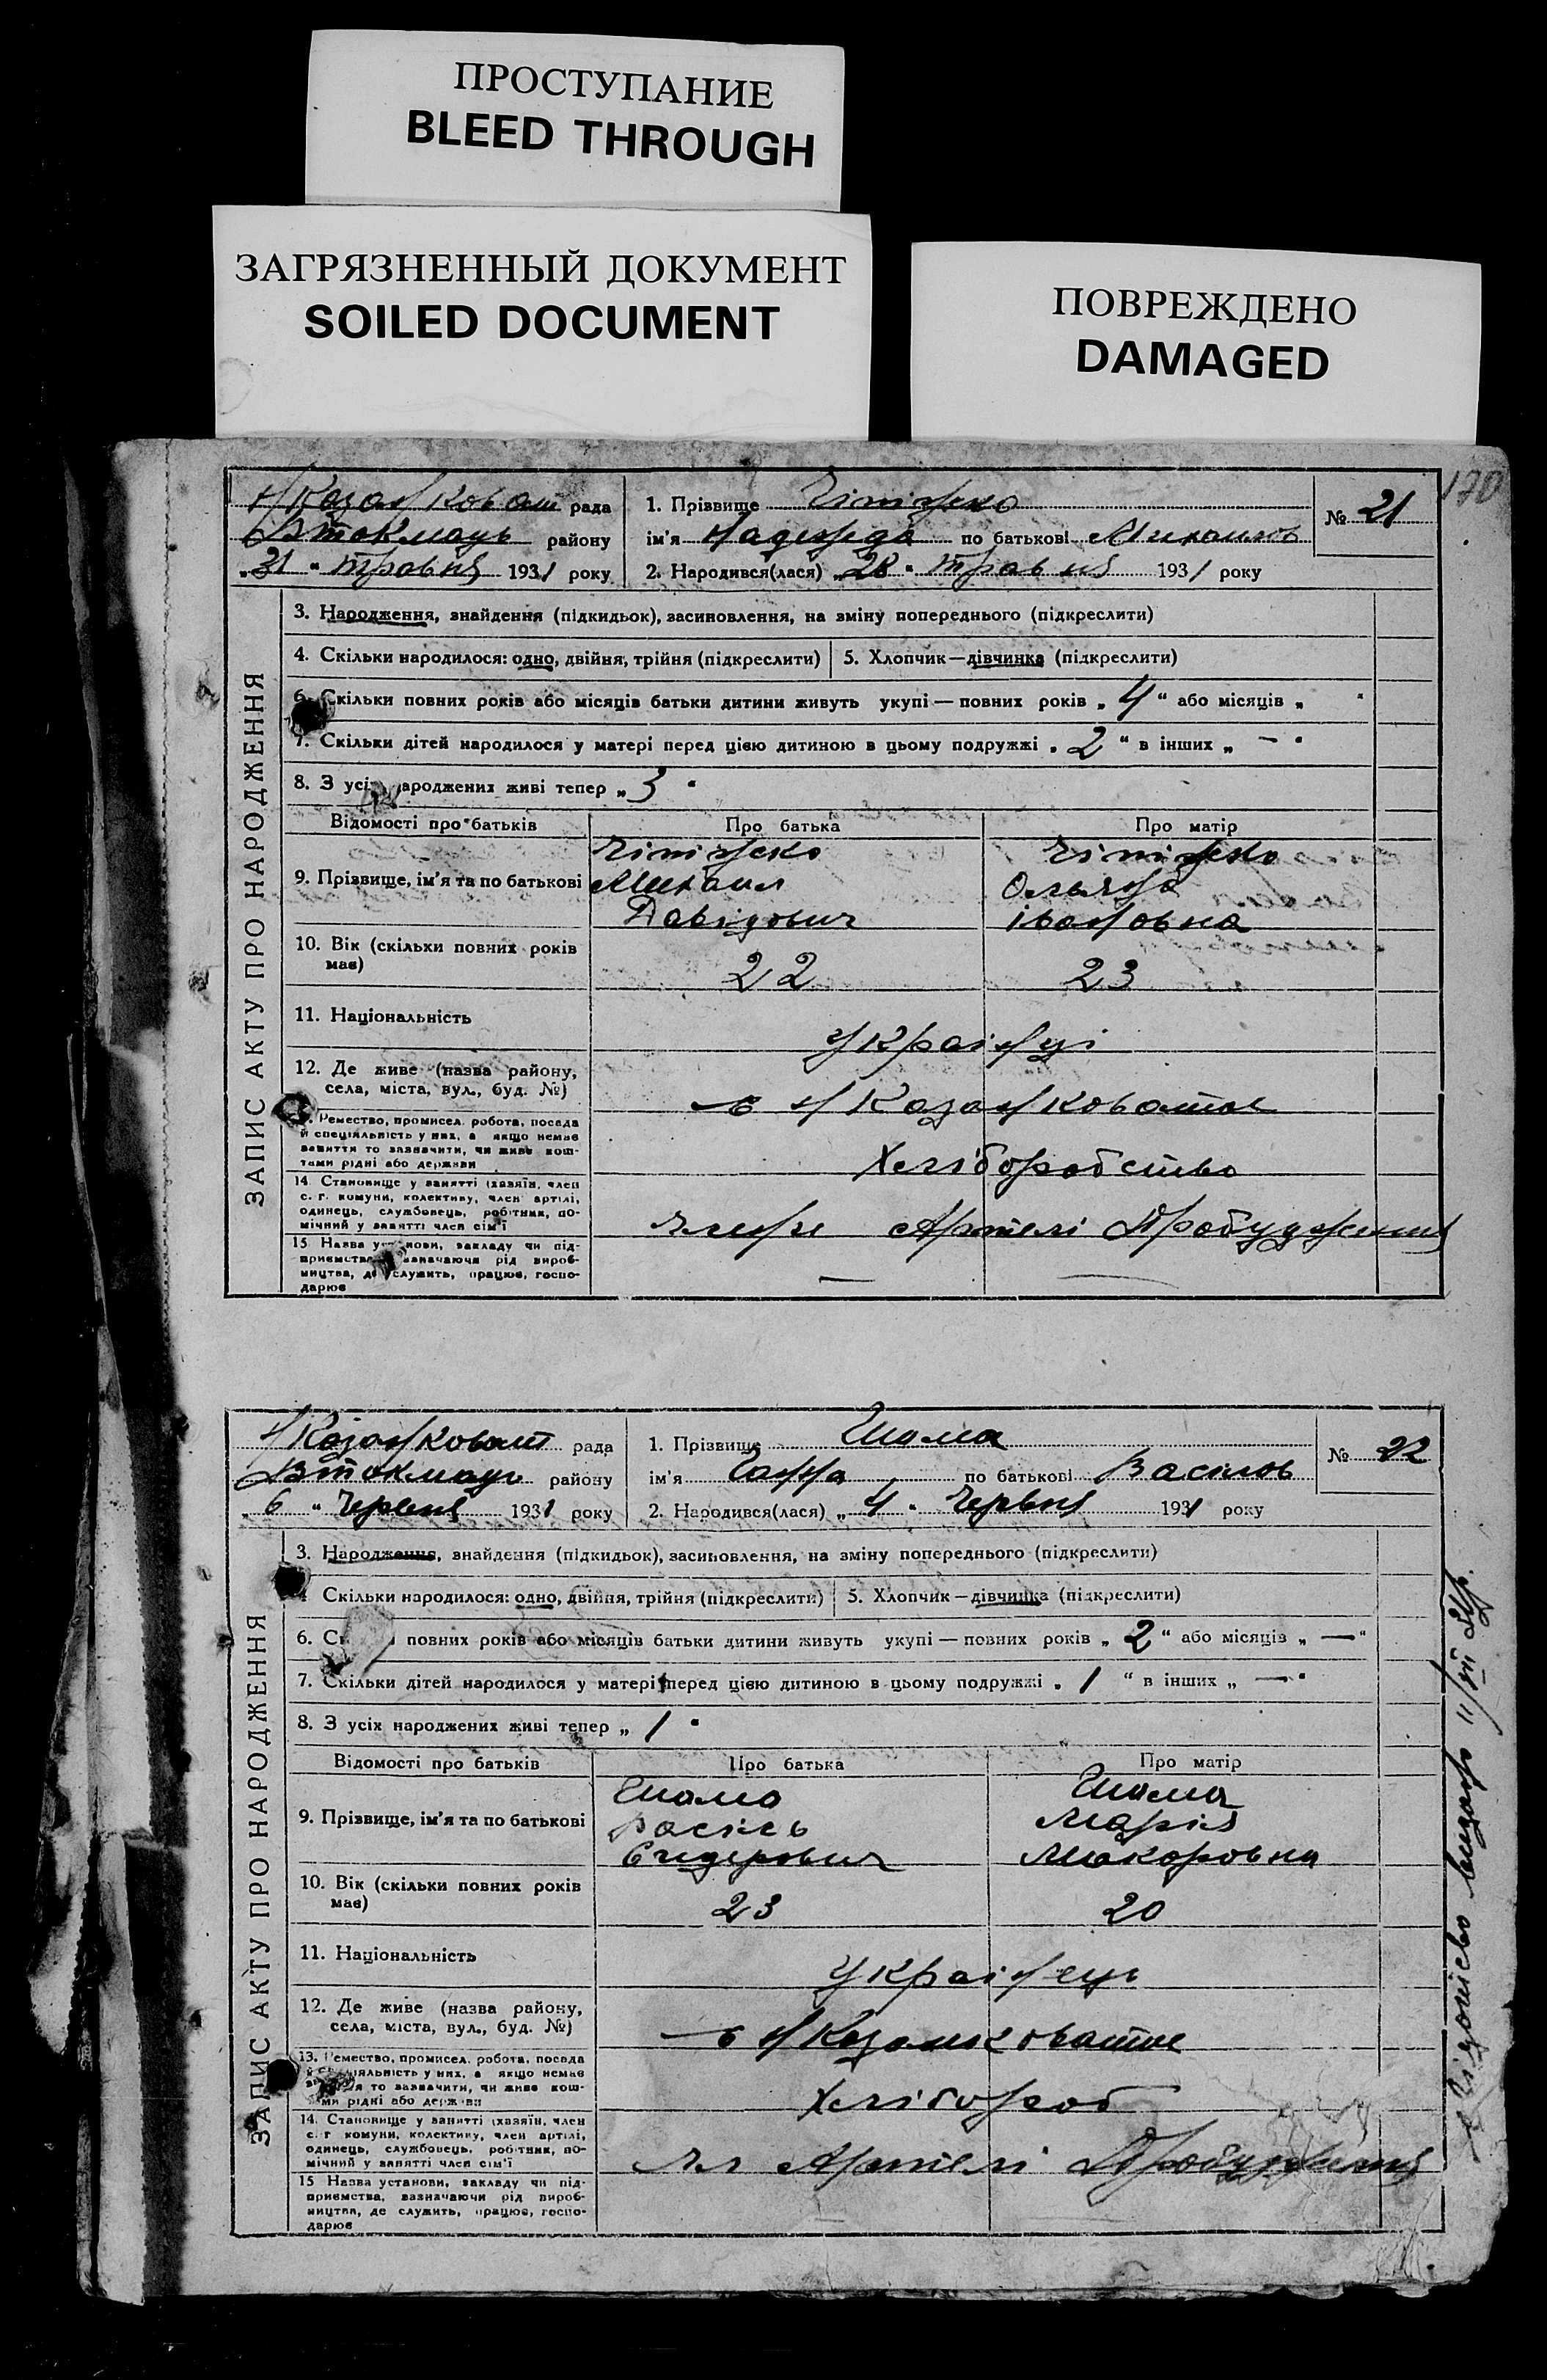 ПРОСТУПАНИЕ
BLEED THROUGH
ЗАГРЯЗНЕННЫЙ ДОКУМЕНТ
SOILED DOCUMENT
ПОВРЕЖДЕНО
DAMAGED
170
ЗАПИС АКТУ ПРО НАРОДЖЕННЯ
Н/Казанковат рада
Втокмаць району
„31“ травня 1931 року
1. Прізвище
ім'я Надежда по батькові Михаилов
№ 21
2. Народився(лася) „28“ травня 1931 року
3. Народження, знайдення (підкидьок), засиновлення, на зміну попереднього (підкреслити)
4. Скільки народилося: одно, двійня, трійня (підкреслити) 5. Хлопчик—дівчинка (підкреслити)
6. Скільки повних років або місяців батьки дитини живуть укупі — повних років „4“ або місяців „ “
7. Скільки дітей народилося у матері перед цією дитиною в цьому подружжі „2“ в інших „—“
8. З усіх народжених живі тепер „3“
Відомості про батьків Про батька Про матір
9. Прізвище, ім'я та по батькові
Михаил
Давідович Івановна
10. Вік (скільки повних років має) 22 23
11. Національність Українці
12. Де живе (назва району, села, міста, вул., буд. №) с Н Казанковатое
13. Ремество, промисел, робота, посада й спеціяльність у них, а якщо немає заняття то зазначити, чи живе коштами рідні або держави Хліборобство
14. Становище у занятті (хазяїн, член с. г. комуни, колективу, член артілі, одинець, службовець, робітник, помічний у занятті член сім'ї Артелі Пробудження
15 Назва установи, закладу чи підприємства, зазначаючи рід виробництва, де служить, працює, господарює — —
ЗАПИС АКТУ ПРО НАРОДЖЕННЯ
Н/Казанковат рада
Втокмаць району
„6“ Червня 1931 року
1. Прізвище
ім'я Ганна по батькові Васілов
№ 22
2. Народився(лася) „4“ Червня 1931 року
3. Народження, знайдення (підкидьок), засиновлення, на зміну попереднього (підкреслити)
4 Скільки народилося: одно, двійня, трійня (підкреслити) 5. Хлопчик—дівчинка (підкреслити)
6. Скільки повних років або місяців батьки дитини живуть укупі — повних років „2“ або місяців „—“
7. Скільки дітей народилося у матері перед цією дитиною в цьому подружжі „1“ в інших „—“
8. З усіх народжених живі тепер „1“
Відомості про батьків Про батька Про матір
9. Прізвище, ім'я та по батькові
Васіль Марія
Сидерович Макаровна
10. Вік (скільки повних років має) 23 20
11. Національність Українець
12. Де живе (назва району, села, міста, вул., буд. №) с Н/Казанковатое
13. Ремество, промисел, робота, посада й спеціяльність у них, а якщо немає заняття то зазначити, чи живе коштами рідні або держави Хлібороб
14. Становище у занятті (хазяїн, член с. г. комуни, колективу, член артілі, одинець, службовець, робітник, помічний у занятті член сім'ї Чл Артелі Пробудження
15 Назва установи, закладу чи підприємства, зазначаючи рід виробництва, де служить, працює, господарює